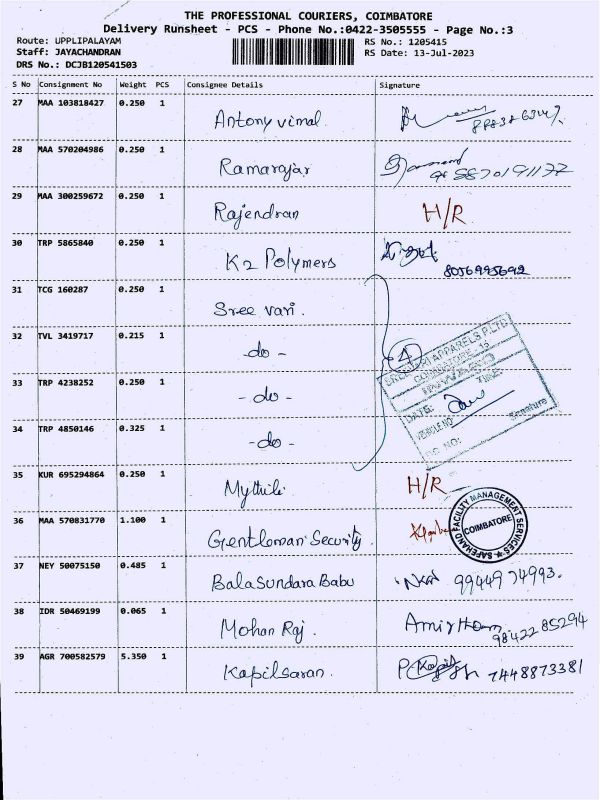 THE PROFESSIONAL COURIERS, COIMBATORE
Delivery Runsheet - PCS - Phone No.:0422-3505555 - Page No.:3
Route: UPPLIPALAYAM
Staff: JAYACHANDRAN
DRS No.: DCJB120541503
RS No.: 1205415
RS Date: 13-Jul-2023
S No Consignment No Weight PCS Consignee Details Signature
27 MAA 103818427 0.250 1 Antony vimal
28 MAA 570204986 0.250 1 Ramarajar
29 MAA 300259672 0.250 1 Rajendran H/R
30 TRP 5865840 0.250 1 K2 Polymers 8056995692
31 TCG 160287 0.250 1 Sree vari.
32 TVL 3419717 0.215 1 -do- 4
33 TRP 4238252 0.250 1 -do-
34 TRP 4850146 0.325 1 -do-
SREE VARI APPARELS P.LTD
COIMBATORE 15
INWARD
DATE: TIME:
VEHICLE NO:
Signature
35 KUR 695294864 0.250 1 Mythili H/R
36 MAA 570831770 1.100 1 Gentleman Security.
SAFEHAND FACILITY MANAGEMENT SERVICES
COIMBATORE
37 NEY 50075150 0.485 1 BalaSundara Babu 9944974993.
38 IDR 50469199 0.065 1 Mohan Raj. Amirtham 9842285294
39 AGR 700582579 5.350 1 Kapilsaran. 7448873381